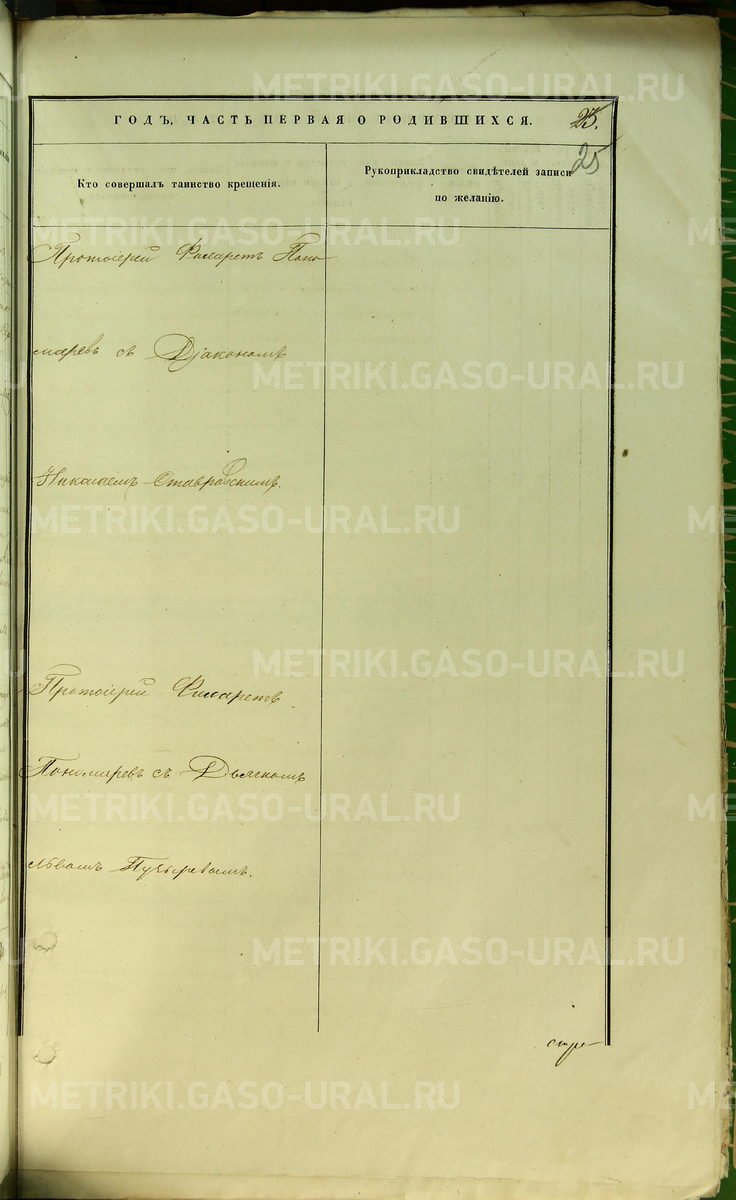 METRIKI.GASO-URAL.RU
ГОДЪ, ЧАСТЬ ПЕРВАЯ О РОДИВШИХСЯ.
23.
25
Кто совершалъ таинство крещенія.
Рукоприкладство свидѣтелей записи
по желанію.
Протоіерей Филаретъ Поно-
маревъ съ Діакономъ
Николаемъ Ставровскимъ.
Протоіерей Филаретъ
Пономаревъ съ Дьячкомъ
Львомъ Пузыревымъ.
METRIKI.GASO-URAL.RU
METRIKI.GASO-URAL.RU
METRIKI.GASO-URAL.RU
METRIKI.GASO-URAL.RU
METRIKI.GASO-URAL.RU
METRIKI.GASO-URAL.RU
METRIKI.GASO-URAL.RU